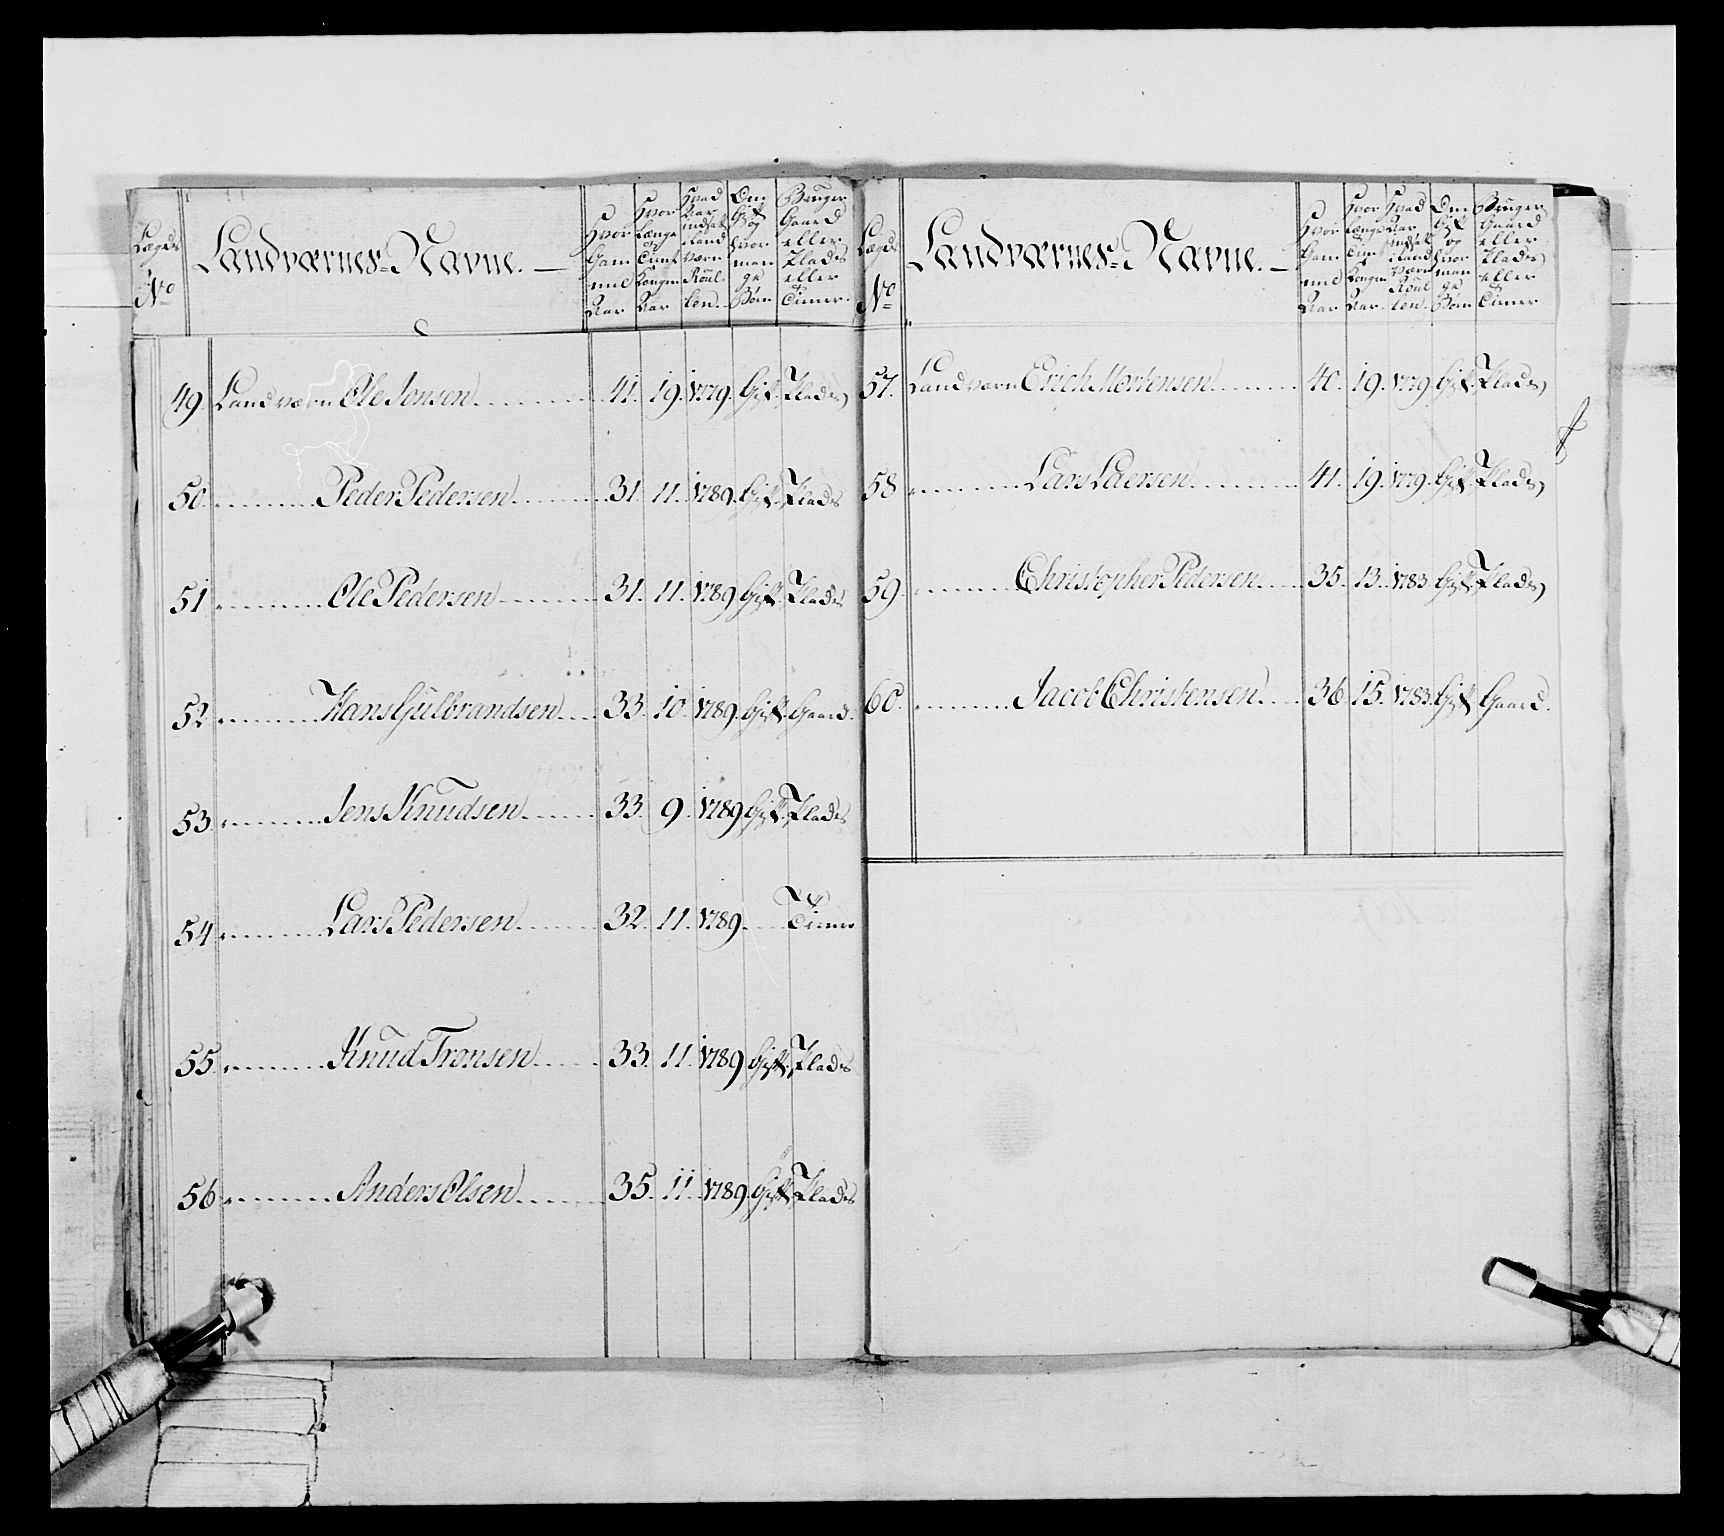 Lægds No
Landværnes Navne.
Hvor Gammel Aar
Hvor Længe Tient Kongen Aar
Hvad Aar indsat i Land Værn Roullen.
Om Gift og hvor mange Børn
Bruger Gaard eller Plads eller Tiener.
49. Landværn Ole Jonsen 41. 19. 1779. Gift. Plads
50. Peder Pedersen 31. 11. 1789. Gift. Plads
51 Ole Pedersen 31. 11. 1789 Gift. Plads
52 Hans Gulbrandsen 33. 10. 1789. Gift. Gaard.
53. Jens Knudsen 33. 9. 1789 Gift. Plads
54 Lars Pedersen 32. 11. 1789. Tiener
55. Knud Tronsen 33. 11. 1789 Gift. Plads
56 Anders Olsen 35. 11. 1789. Gift. Plads
Lægds No
Landværnes Navne.
Hvor Gammel Aar
Hvor Længe Tient Kongen Aar.
Hvad Aar indsat i Land Værn Roullen.
Om Gift og hvor mange Børn
Bruger Gaard eller Plads eller Tiener
57. Landværn Erich Mortensen 40. 19. 1779. Gift. Plads
58 Lars Laersen 41. 19. 1779. Gift. Plads
59. Christopher Pedersen 35. 13. 1783. Gift. Plads
60. Jacob Christensen 36. 15. 1783. Gift Gaard.